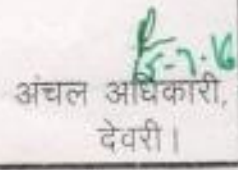 5-7-16
अंचल अधिकारी,
देवरी।